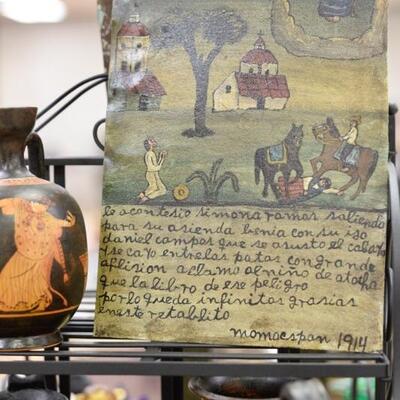 le acontesio simona ramos saliendo
para su asienda benia con su iso
daniel campos que se asusto el cabayo
y se cayo entrelas patas con grande
aflision aclamo al niño de atocha
que la libro de ese peligro
por lo queda infinitas grasias
eneste retablito
momaespan 1914